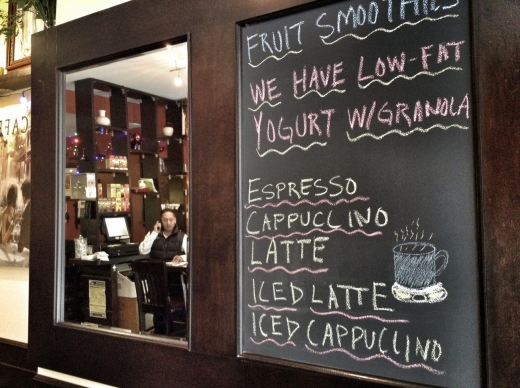 FRUIT SMOOTHIES
WE HAVE LOW-FAT
YOGURT W/GRANOLA
ESPRESSO
CAPPUCCINO
LATTE
ICED LATTE
ICED CAPPUCCINO
CAFÉ